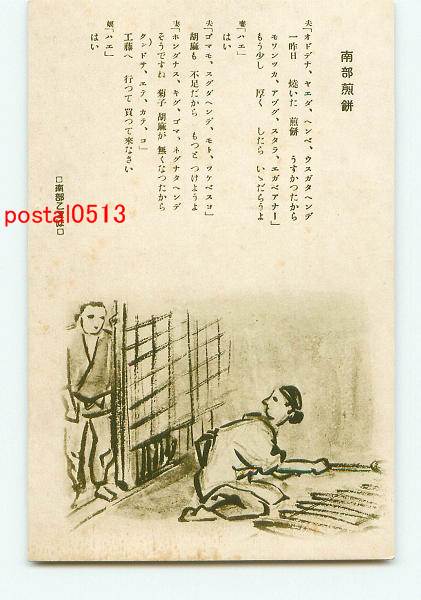 南部煎餅
夫「オドデナ、ヤエダ、ヘンベ、ウスガタヘンデ
一昨日 焼いた 煎餅 うすかつたから
モソンツカ、アヅグ、スタラ、エガベアナー」
もう少し 厚く したら いゝだらうよ
妻「ハエ」
はい
夫「ゴマモ、スグダヘンデ、モト、ツケベスコ」
胡麻も 不足だから もつと つけようよ
妻「ホンダナス、キグ、ゴマ、ネグナタヘンデ
そうですね 菊子 胡麻が 無くなつたから
クンドサ、エテ、カテ、コ」
工藤へ 行つて 買つて来なさい
娘「ハエ」
はい
□南部乙
postal0513